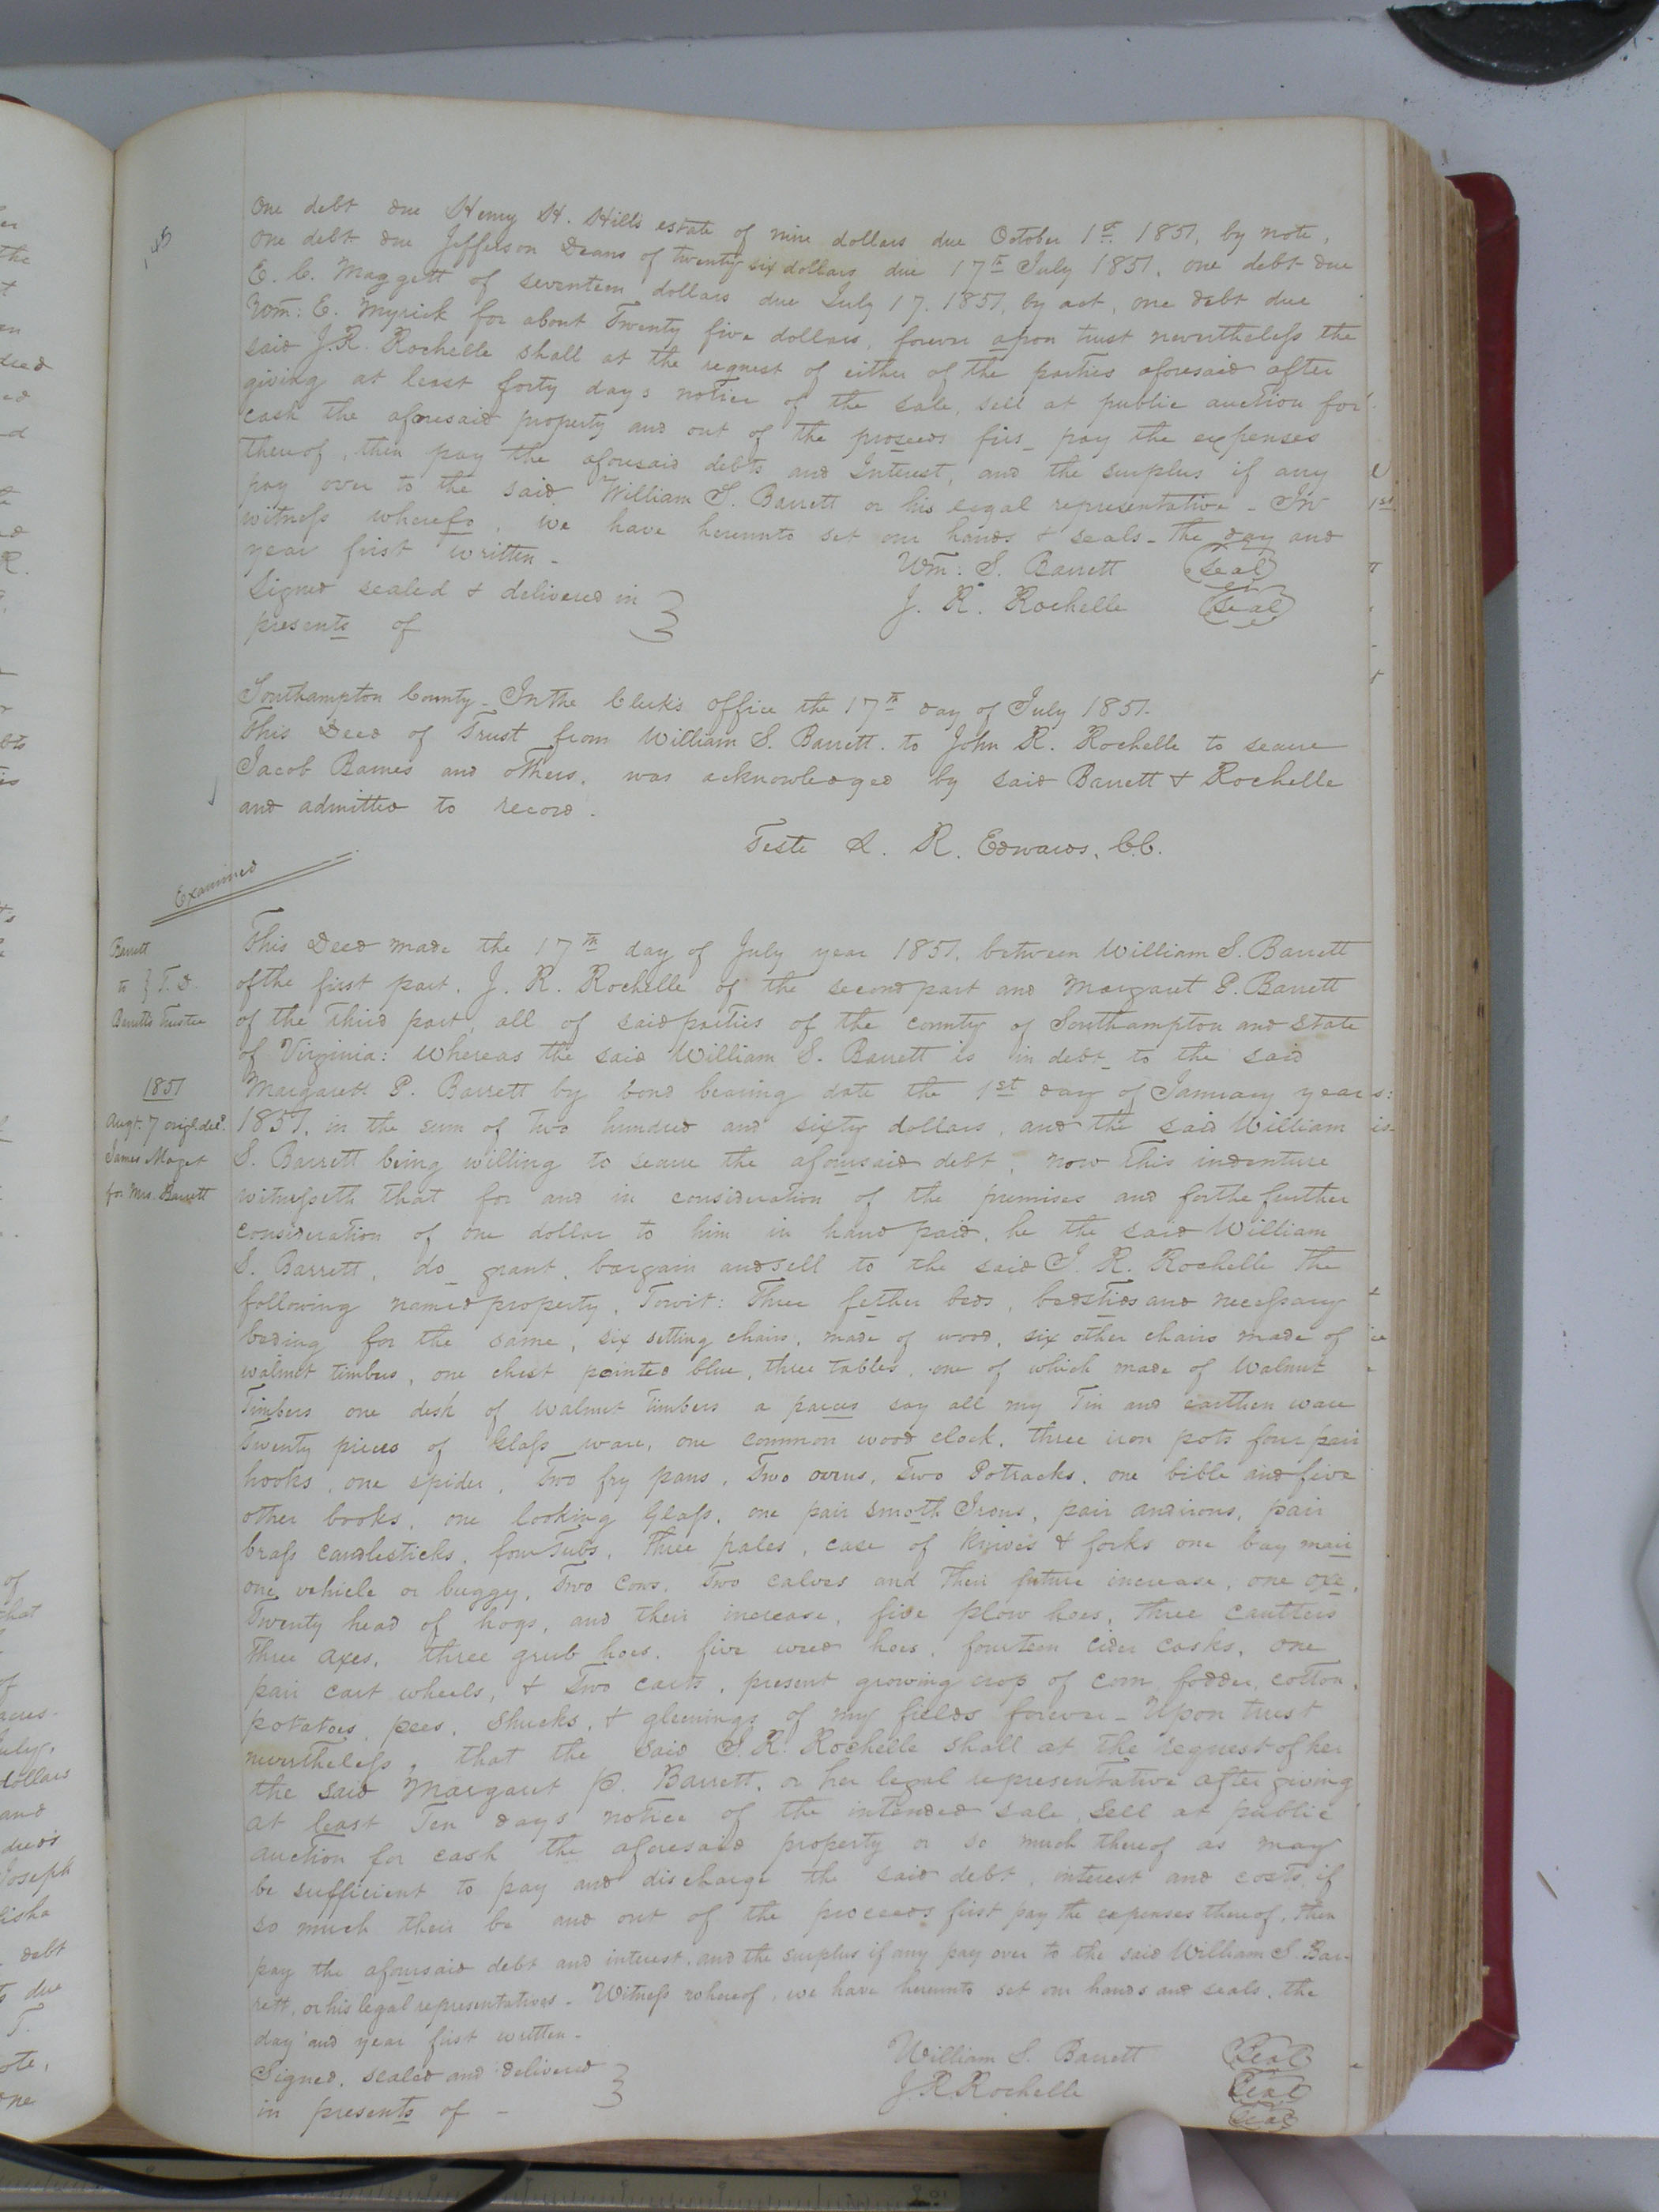 145
One debt due Henry H. Hills estate of nine dollars due October 1st 1851, by note,
one debt due Jefferson Deans of twenty six dollars due 17th July 1851, one debt due
E. C. Maggett of seventeen dollars due July 17. 1851, by act, one debt due
Wm: E. Myrick for about Twenty five dollars, forever upon trust nevertheless the
said J. R. Rochelle shall at the request of either of the parties aforesaid after
giving at least forty days notice of the sale, sell at public auction for
cash the aforesaid property and out of the proseeds firs pay the expenses
thereof, then pay the aforesaid debts and Interest, and the surplus if any
pay over to the said William S. Barrett or his legal representative - In
witness wherefo, we have hereunto set our hands & seals - the day and
year first written -
Wm. S. Barrett (seal)
Signed sealed & delivered in
J. R. Rochelle (seal)
presents of
Southampton County - In the Clerk's office the 17th day of July 1851.
This Deed of Trust from William S. Barrett to John R. Rochelle to secure
Jacob Barnes and others, was acknowledged by said Barrett & Rochelle
and admitted to record.
Teste L. R. Edwards, C.C.
Examined
Barrett
to } T. D.
Barretts Trustee
1851
Augt. 7 origl. del.
James Maget
for Mrs. Barrett
This Deed made the 17th day of July year 1851, between William S. Barrett
of the first part, J. R. Rochelle of the second part and Margaret P. Barrett
of the third part, all of said parties of the county of Southampton and state
of Virginia: Whereas the said William S. Barrett is in debt to the said
Margarett P. Barrett by bond bearing date the 1st day of January year
1851, in the sum of two hundred and sixty dollars, and the said William
S. Barrett being willing to secure the afoursaid debt, now This indenture
witnesseth that for and in consideration of the premises and for the further
consideration of one dollar to him in hand paid, he the said William
S. Barrett, do grant, bargain and sell to the said J. R. Rochelle the
following named property, Towit: Three fether beds, bedstids and necessary
beding for the same, six setting chairs, made of wood, six other chairs made of
walnut timbers, one chest painted blue, three tables, one of which made of Walnut
Timbers one desk of walnut Timbers a parces say all my Tin and earthen ware
Twenty pieces of klass ware, one common wood clock, three iron pots four pair
hooks, one spider, Two fry pans, Two ovens, Two Potracks, one bible and five
other books, one looking Glass, one pair smoth Irons, pair andirons, pair
brass candlesticks, four Tubs, Three pales, case of knives & forks one bay mair
one vehicle or buggy, Two cows, Two calves and their future increase, one oxe,
Twenty head of hogs, and their increase, five plow hoes, three caulters
Three axes, three grub hoes, five weed hoes, fourteen cider casks, one
pair cart wheels, & Two carts, present growing crop of corn, fodder, cotton,
potatoes, pees, Shucks, & gleenings of my fields forever - Upon trust
nevertheless, that the said J. R. Rochelle shall at the request of her
the said Margaret P. Barrett, or her legal representative after giving
at least Ten days notice of the intended sale, sell at public
auction for cash the aforesaid property or so much thereof as may
be sufficient to pay and discharge the said debt, interest and costs, if
so much their be and out of the proceeds first pay the expenses thereof, then
pay the afoursaid debt and interest, and the surplus if any pay over to the said William S. Bar-
rett, or his legal representatives - Witness whereof, we have hereunto set our hands and seals, the
day and year first written -
Signed, sealed and delivered
William S. Barrett (Seal)
J. R. Rochelle (Seal)
in presents of -
(Seal)